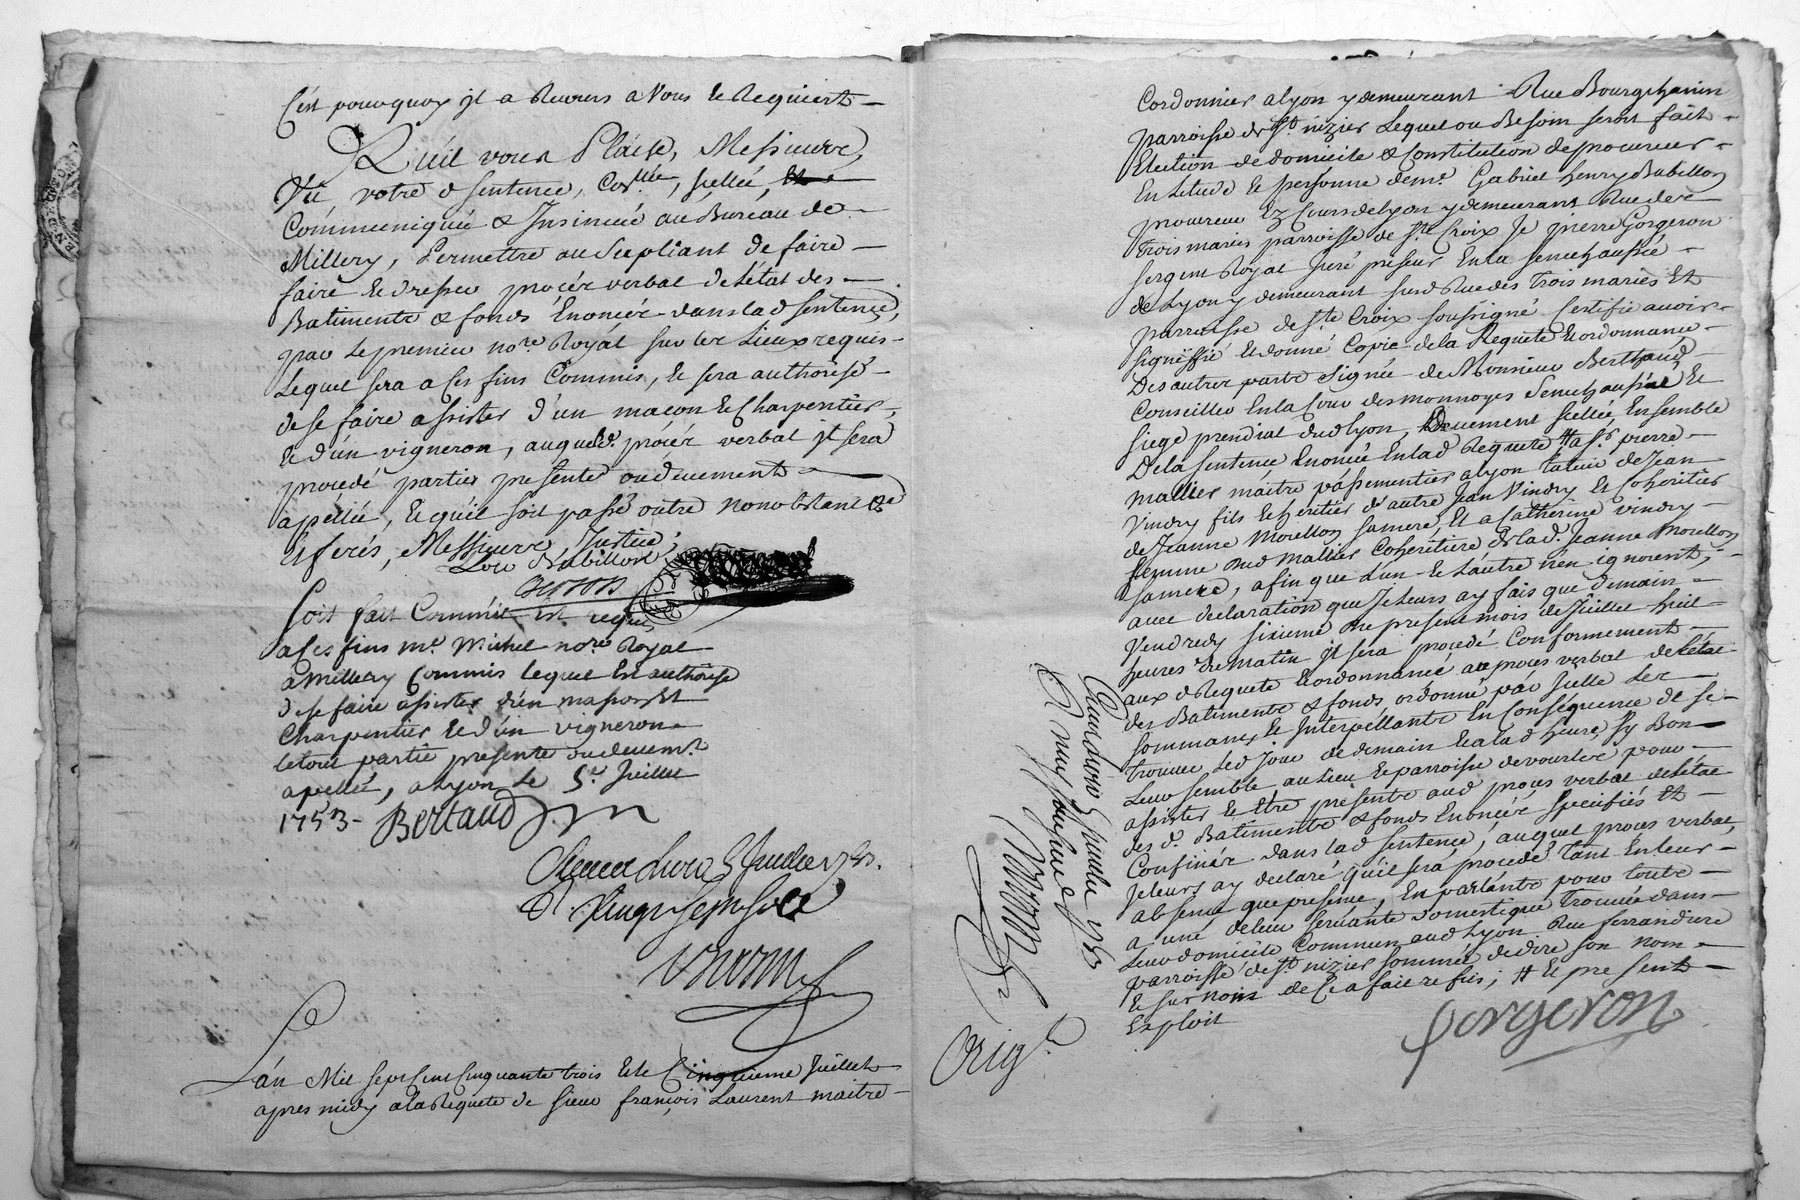 C'est pourquoy jl a Recours a Vous & Requiert
Qu'il vous Plaise, Messieurs,
Vû votre d sentence, scellée,
Communiquée & Insinuée au Bureau de
Millery, Permettre au Supliant de faire
faire & dresser procés verbal de l'état des
Batiments & fonds Enoncés dans lad sentence,
par le premier no.re Royal sur les Lieux requis
Lequel sera a Ces fins Commis, & sera authorisé
de se faire assister d'un macon & Charpentier,
& d'un vigneron, auquel d. procés verbal jl sera
procedé parties presentes ou duement
apellée, & qu'il soit passé outre nonobstance
& ferés, Messieurs, Justice;
Nubillon
Soit fait Commis Est requis
a Ces fins m.e Michel no.re Royal
a Millery Commis lequel Est authorisé
de se faire assister d'un masson &
Charpentier & d'un vigneron
le tout partie presente ou duem.t
apellé, a Lyon le 5.e Juillet
1753 Bertaud
5 Juillet 1753.
R. vingt sept sols
L'an Mil sept Cent Cinquante trois & le Cinquieme Juillet
apres midy a la Requete de sieur françois Laurent maitre
Cordonnier a lyon y demeurant Rue Bourgchanin
parroisse de S.t nizier Lequel ou Besoin seroit fait
Election de domicile & Constitution de procureur
En letude & personne de m.e Gabriel henry Nubillon
procureur Ez Cours de Lyon y demeurant Rue des
trois maries parroisse de S.te Croix Je pierre Gorgeron
sergent Royal Juré priseur En la senechaussée
de Lyon y demeurant susd Rue des trois maries Et
parroisse de S.te Croix soussigné Certifie avoir
signiffié & donné Copie de la Requete & ordonnance
Des autres parts signée de Monsieur Berthaud,
Conseiller En la Cour des monnoyes Senechaussée Et
siege presidial dud lyon, Duement scellée Ensemble
De la sentence Enoncée En lad Requete # a s.r pierre
mallier maitre passementier a lyon tuteur de Jean
Vindry fils & heritier d'autre Jean Vindry Et Coheritier
de Jeanne Morellon sa mere, Et a Catherine vindry
femme dud Mallier Coheritiere de lad. Jeanne Morellon
sa mere, afin que l'un & l'autre n'en ignorent,
avec declaration que Je leurs ay fais que demain
Vendredy sixieme du present mois de Juillet huit
heures du matin jl sera procedé Conformement
aux d Requete & ordonnance au proces verbal de l'état
des Batiments & fonds ordonné par Jcelle Les
sommant & Interpellants En Conséquence de se
trouver led Jour de demain & a lad heure sy Bon
Leur semble au lieu & parroisse de vourles pour
assister & Etre presents aud proces verbal de l'état
des d. Batiments & fonds Enoncés specifiés Et
Confinés dans lad sentence, auquel proces verbal,
Je leurs ay declaré qu'il sera procedé tant En leur
absence que presence, En parlants pour toute
a une de leur servante domestique trouvée dans
Leur domicile Commun aud Lyon Rue ferrandiere
parroisse de S.t nizier sommée de dire son nom
& surnom de Ce a faire refus; # & present
Exploit
Gorgeron
Orig.l